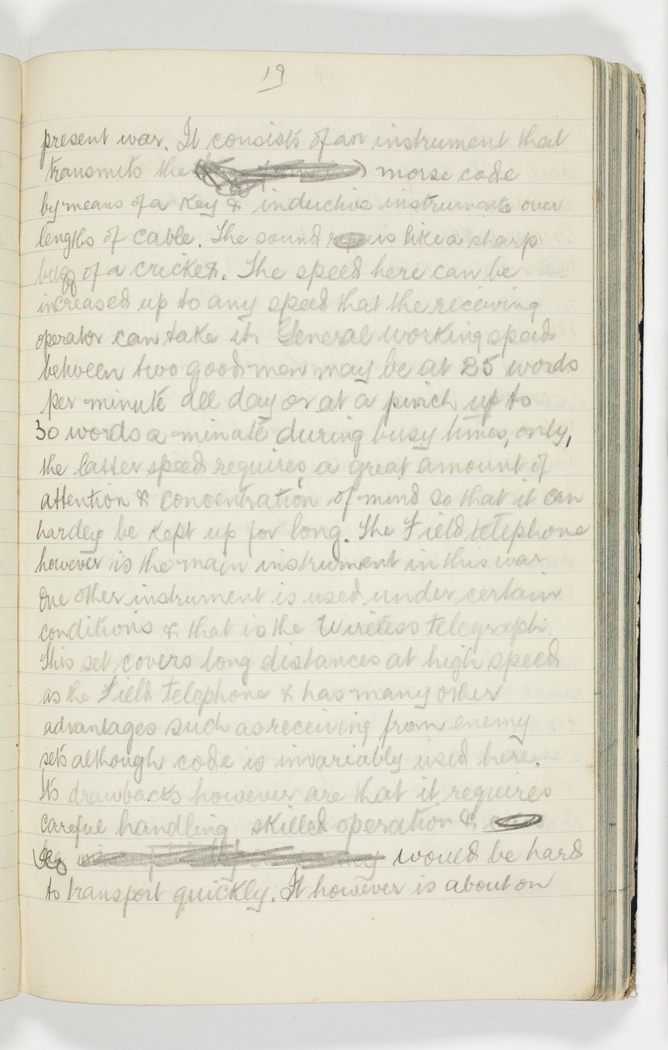 19
present war. It consists of an instrument that
transmits the morse code
by means of a key & inductive instruments over
lengths of cable. The sound is like a sharp
buzz of a cricket. The speed here can be
increased up to any speed that the receiving
operator can take it. General working speeds
between two good men may be at 25 words
per minute all day or at a pinch up to
30 words a minute during busy times, only,
the latter speed requires a great amount of
attention & concentration of mind so that it can
hardly be kept up for long. The Field telephone
however is the main instrument in this war.
One other instrument is used under certain
conditions & that is the Wireless telegraph.
This set covers long distances at high speed
as the Field telephone & has many other
advantages such as receiving from enemy
sets although code is invariably used here.
Its drawbacks however are that it requires
careful handling skilled operation &
would be hard
to transport quickly. It however is about on